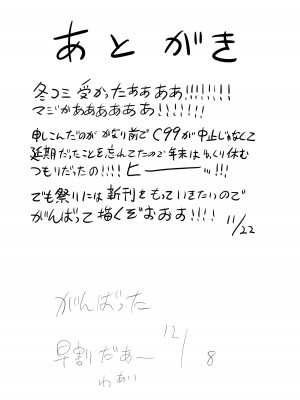 あとがき
冬コミ受かったぁぁああ!!!!!!!
マジかああああああ!!!!!!!
申しこんだのがかなり前でC99が中止じゃなくて
延期だったことを忘れてたので年末はゆっくり休む
つもりだったの!!!!ヒーーーッ!!!
でも祭りには新刊をもっていきたいので
がんばって描くぞおおお!!!!
11/22
がんばった
早割だぁ〜 12/8
わぁい